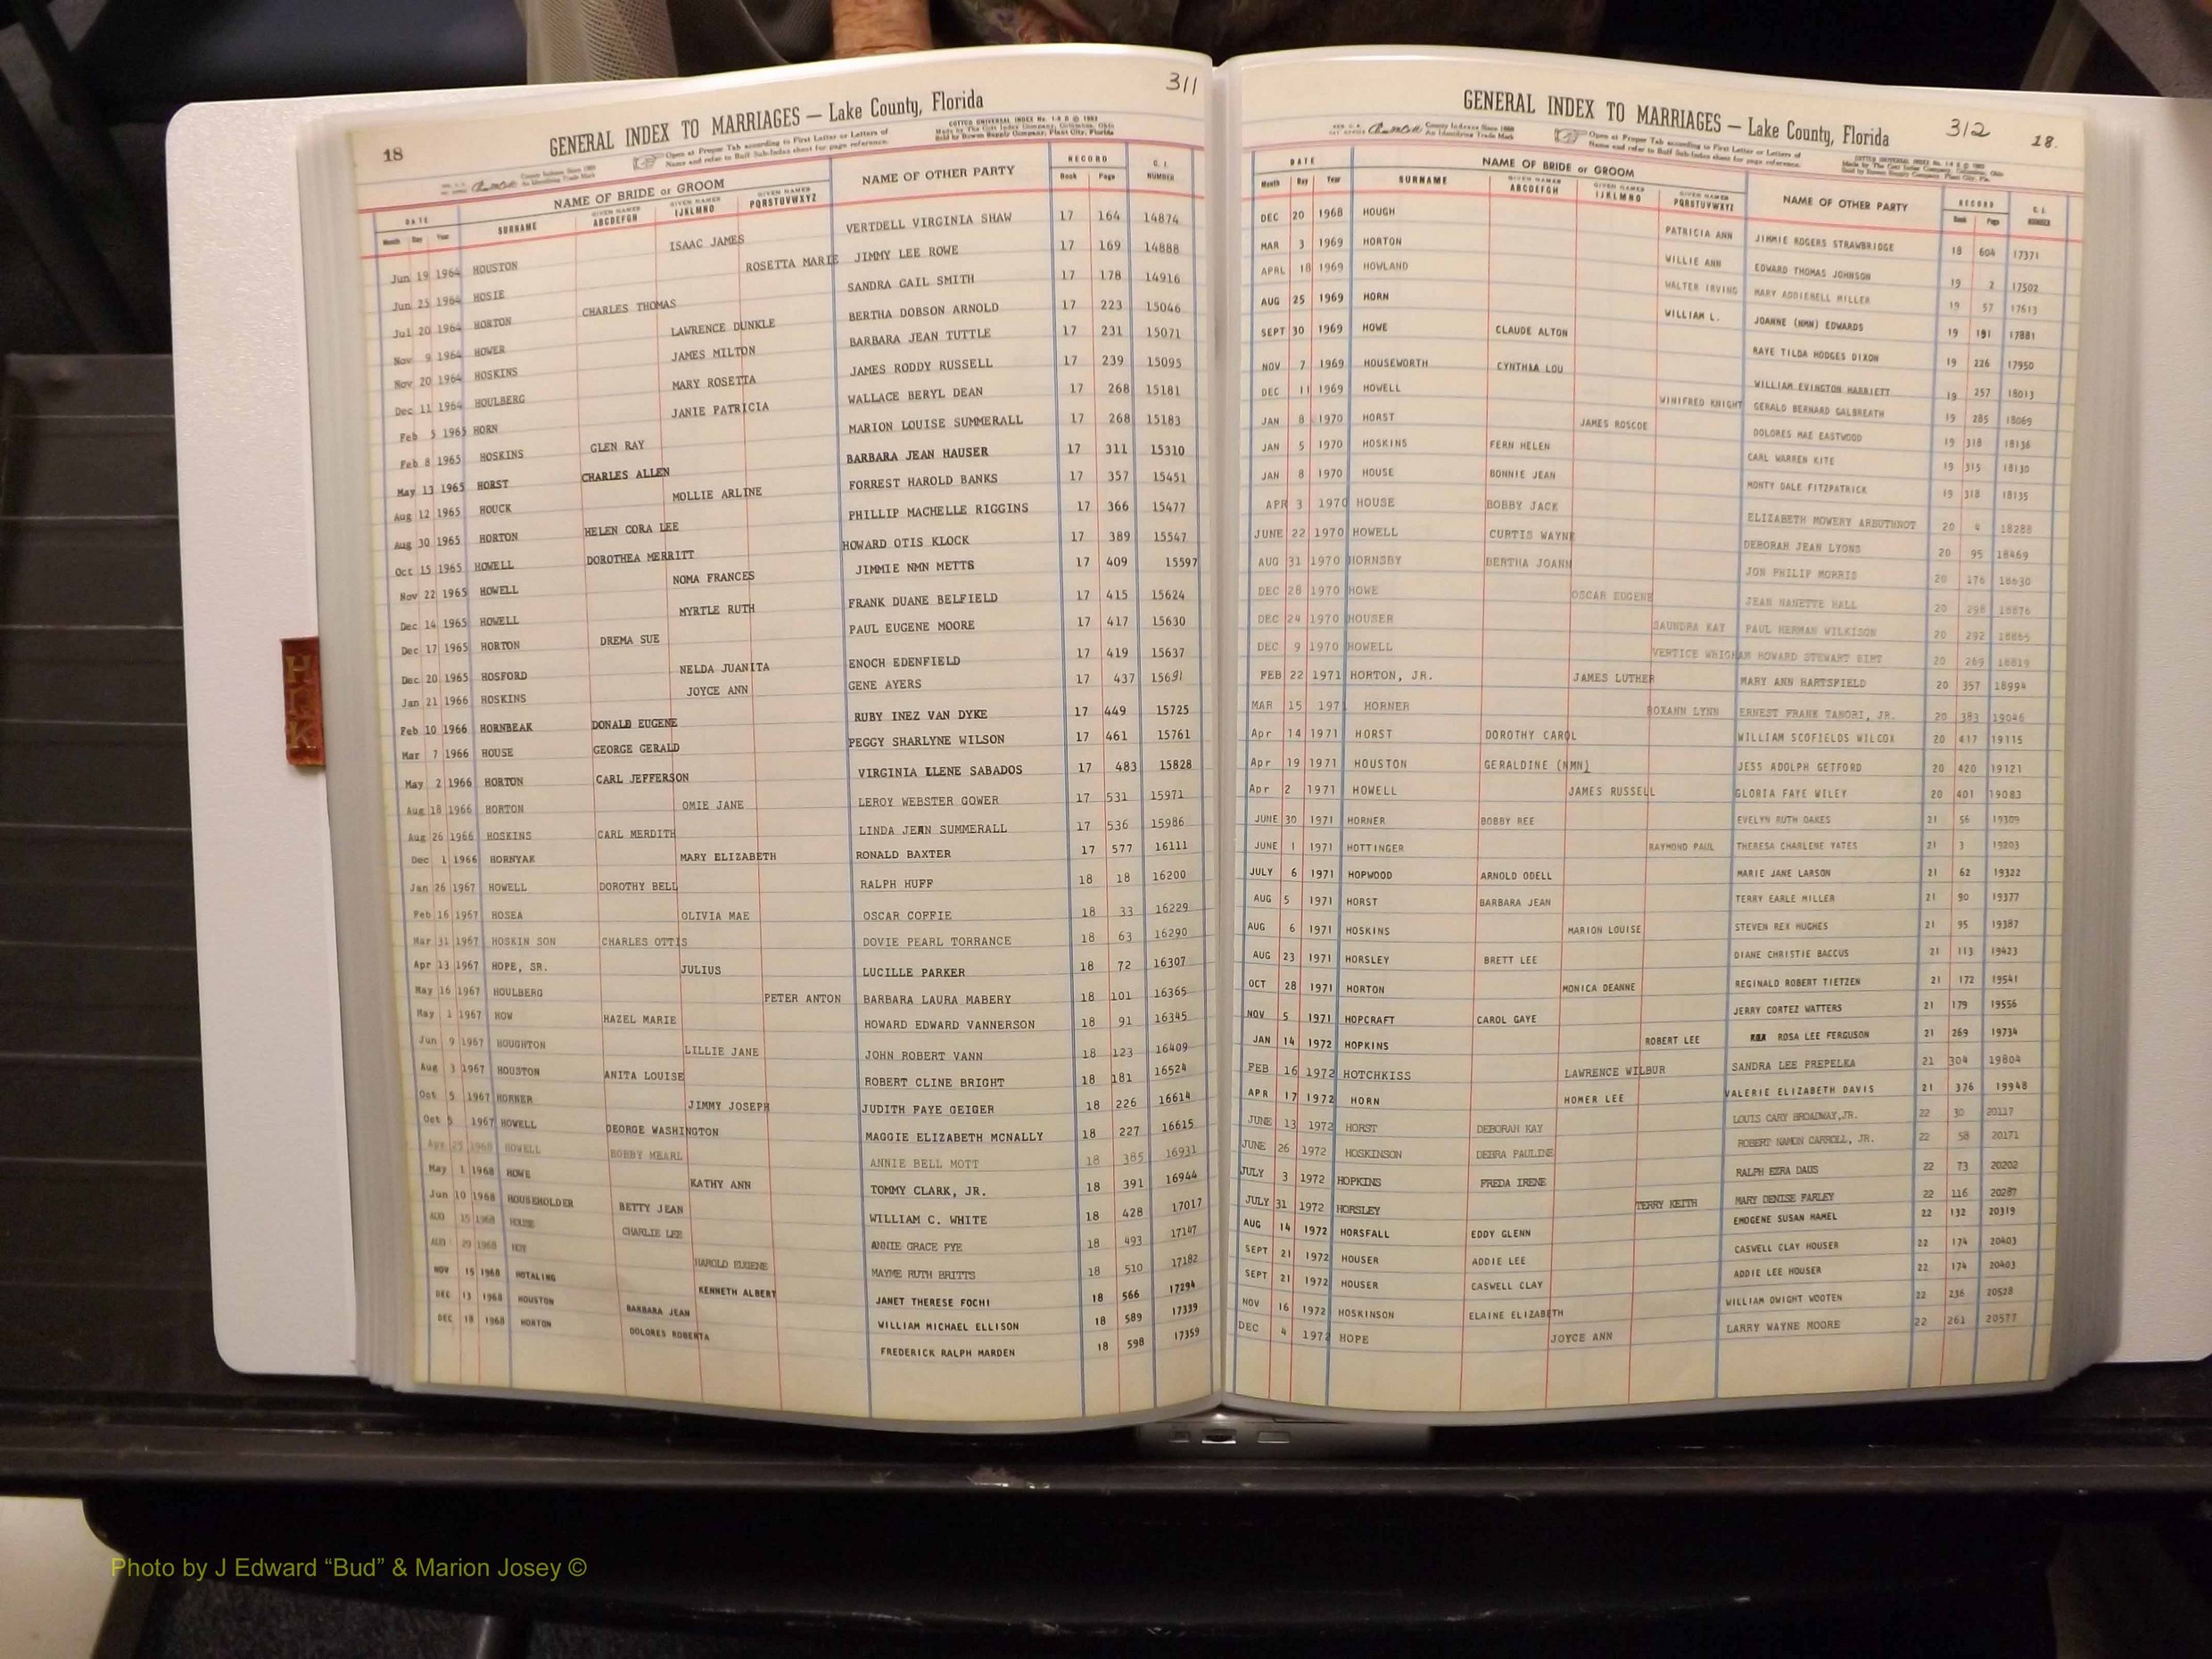 18
311
GENERAL INDEX TO MARRIAGES — Lake County, Florida
Open at Proper Tab according to First Letter or Letters of
Name and refer to Buff Sub-Index sheet for page reference.
COTTCO UNIVERSAL INDEX
DATE NAME OF BRIDE or GROOM NAME OF OTHER PARTY RECORD G. I.
Month Day Year SURNAME GIVEN NAMES ABCDEFGH GIVEN NAMES IJKLMNO GIVEN NAMES PQRSTUVWXYZ Book Page NUMBER
Jun 19 1964 HOUSTON ISAAC JAMES VERTDELL VIRGINIA SHAW 17 164 14874
Jun 25 1964 HOSIE ROSETTA MARIE JIMMY LEE ROWE 17 169 14888
Jul 20 1964 HORTON CHARLES THOMAS SANDRA GAIL SMITH 17 178 14916
Nov 9 1964 HOWER LAWRENCE DUNKLE BERTHA DOBSON ARNOLD 17 223 15046
Nov 20 1964 HOSKINS JAMES MILTON BARBARA JEAN TUTTLE 17 231 15071
Dec 11 1964 HOULBERG MARY ROSETTA JAMES RODDY RUSSELL 17 239 15095
Feb 5 1965 HORN JANIE PATRICIA WALLACE BERYL DEAN 17 268 15181
Feb 8 1965 HOSKINS GLEN RAY MARION LOUISE SUMMERALL 17 268 15183
May 13 1965 HORST CHARLES ALLEN BARBARA JEAN HAUSER 17 311 15310
Aug 12 1965 HOUCK MOLLIE ARLINE FORREST HAROLD BANKS 17 357 15451
Aug 30 1965 HORTON HELEN CORA LEE PHILLIP MACHELLE RIGGINS 17 366 15477
Oct 15 1965 HOWELL DOROTHEA MERRITT HOWARD OTIS KLOCK 17 389 15547
Nov 22 1965 HOWELL NOMA FRANCES JIMMIE NMN METTS 17 409 15597
Dec 14 1965 HOWELL MYRTLE RUTH FRANK DUANE BELFIELD 17 415 15624
Dec 17 1965 HORTON DREMA SUE PAUL EUGENE MOORE 17 417 15630
Dec 20 1965 HOSFORD NELDA JUANITA ENOCH EDENFIELD 17 419 15637
Jan 21 1966 HOSKINS JOYCE ANN GENE AYERS 17 437 15691
Feb 10 1966 HORNBEAK DONALD EUGENE RUBY INEZ VAN DYKE 17 449 15725
Mar 7 1966 HOUSE GEORGE GERALD PEGGY SHARLYNE WILSON 17 461 15761
May 2 1966 HORTON CARL JEFFERSON VIRGINIA LLENE SABADOS 17 483 15828
Aug 18 1966 HORTON OMIE JANE LEROY WEBSTER GOWER 17 531 15971
Aug 26 1966 HOSKINS CARL MERDITH LINDA JEAN SUMMERALL 17 536 15986
Dec 1 1966 HORNYAK MARY ELIZABETH RONALD BAXTER 17 577 16111
Jan 26 1967 HOWELL DOROTHY BELL RALPH HUFF 18 18 16200
Feb 16 1967 HOSEA OLIVIA MAE OSCAR COFFIE 18 33 16229
Mar 31 1967 HOSKIN SON CHARLES OTTIS DOVIE PEARL TORRANCE 18 63 16290
Apr 13 1967 HOPE, SR. JULIUS LUCILLE PARKER 18 72 16307
May 16 1967 HOULBERG PETER ANTON BARBARA LAURA MABERY 18 101 16365
May 1 1967 HOW HAZEL MARIE HOWARD EDWARD VANNERSON 18 91 16345
Jun 9 1967 HOUGHTON LILLIE JANE JOHN ROBERT VANN 18 123 16409
Aug 3 1967 HOUSTON ANITA LOUISE ROBERT CLINE BRIGHT 18 181 16524
Oct 5 1967 HORNER JIMMY JOSEPH JUDITH FAYE GEIGER 18 226 16614
Oct 5 1967 HOWELL GEORGE WASHINGTON MAGGIE ELIZABETH MCNALLY 18 227 16615
Apr 25 1968 HOWELL BOBBY MEARL ANNIE BELL MOTT 18 385 16931
May 1 1968 HOWE KATHY ANN TOMMY CLARK, JR. 18 391 16944
Jun 10 1968 HOUSEHOLDER BETTY JEAN WILLIAM C. WHITE 18 428 17017
AUG 15 1968 HOUSE CHARLIE LEE ANNIE GRACE PYE 18 493 17147
AUG 29 1968 HOY HAROLD EUGENE MAYME RUTH BRITTS 18 510 17182
NOV 15 1968 HOTALING KENNETH ALBERT JANET THERESE FOCHI 18 566 17294
DEC 13 1968 HOUSTON BARBARA JEAN WILLIAM MICHAEL ELLISON 18 589 17339
DEC 18 1968 HORTON DOLORES ROBERTA FREDERICK RALPH MARDEN 18 598 17359
H
K
GENERAL INDEX TO MARRIAGES — Lake County, Florida
312
18.
Open at Proper Tab according to First Letter or Letters of
Name and refer to Buff Sub-Index sheet for page reference.
DATE NAME OF BRIDE or GROOM NAME OF OTHER PARTY RECORD G. I.
Month Day Year SURNAME GIVEN NAMES ABCDEFGH GIVEN NAMES IJKLMNO GIVEN NAMES PQRSTUVWXYZ Book Page NUMBER
DEC 20 1968 HOUGH PATRICIA ANN JIMMIE ROGERS STRAWBRIDGE 18 604 17371
MAR 3 1969 HORTON WILLIE ANN EDWARD THOMAS JOHNSON 19 2 17502
APRL 18 1969 HOWLAND WALTER IRVING MARY ADDIEBELL MILLER 19 57 17613
AUG 25 1969 HORN WILLIAM L. JOANNE (NMN) EDWARDS 19 191 17881
SEPT 30 1969 HOWE CLAUDE ALTON RAYE TILDA HODGES DIXON 19 226 17950
NOV 7 1969 HOUSEWORTH CYNTHIA LOU WILLIAM EVINGTON HARRIETT 19 257 18013
DEC 11 1969 HOWELL WINIFRED KNIGHT GERALD BERNARD GALBREATH 19 285 18069
JAN 8 1970 HORST JAMES ROSCOE DOLORES MAE EASTWOOD 19 318 18136
JAN 5 1970 HOSKINS FERN HELEN CARL WARREN KITE 19 315 18130
JAN 8 1970 HOUSE BONNIE JEAN MONTY DALE FITZPATRICK 19 318 18135
APR 3 1970 HOUSE BOBBY JACK ELIZABETH MOWERY ARBUTHNOT 20 4 18288
JUNE 22 1970 HOWELL CURTIS WAYNE DEBORAH JEAN LYONS 20 95 18469
AUG 31 1970 HORNSBY BERTHA JOANN JON PHILIP MORRIS 20 176 18630
DEC 28 1970 HOWE OSCAR EUGENE JEAN NANETTE HALL 20 298 18876
DEC 24 1970 HOUSER SAUNDRA KAY PAUL HERMAN WILKISON 20 292 18865
DEC 9 1970 HOWELL VERTICE WHIGHAM HOWARD STEWART BIRT 20 269 18819
FEB 22 1971 HORTON, JR. JAMES LUTHER MARY ANN HARTSFIELD 20 357 18994
MAR 15 197 HORNER ROXANN LYNN ERNEST FRANK TANORI, JR. 20 383 19046
Apr 14 1971 HORST DOROTHY CAROL WILLIAM SCOFIELDS WILCOX 20 417 19115
Apr 19 1971 HOUSTON GERALDINE (NMN) JESS ADOLPH GETFORD 20 420 19121
Apr 2 1971 HOWELL JAMES RUSSELL GLORIA FAYE WILEY 20 401 19083
JUNE 30 1971 HORNER BOBBY REE EVELYN RUTH OAKES 21 56 19309
JUNE 1 1971 HOTTINGER RAYMOND PAUL THERESA CHARLENE YATES 21 3 19203
JULY 6 1971 HOPWOOD ARNOLD ODELL MARIE JANE LARSON 21 62 19322
AUG 5 1971 HORST BARBARA JEAN TERRY EARLE MILLER 21 90 19377
AUG 6 1971 HOSKINS MARION LOUISE STEVEN REX HUGHES 21 95 19387
AUG 23 1971 HORSLEY BRETT LEE DIANE CHRISTIE BACCUS 21 113 19423
OCT 28 1971 HORTON MONICA DEANNE REGINALD ROBERT TIETZEN 21 172 19541
NOV 5 1971 HOPCRAFT CAROL GAYE JERRY CORTEZ WATTERS 21 179 19556
JAN 14 1972 HOPKINS ROBERT LEE ROSA LEE FERGUSON 21 269 19734
FEB 16 1972 HOTCHKISS LAWRENCE WILBUR SANDRA LEE PREPELKA 21 304 19804
APR 17 1972 HORN HOMER LEE VALERIE ELIZABETH DAVIS 21 376 19948
JUNE 13 1972 HORST DEBORAH KAY LOUIS CARY BROADWAY,JR. 22 30 20117
JUNE 26 1972 HOSKINSON DEBRA PAULINE ROBERT NAMON CARROLL, JR. 22 58 20171
JULY 3 1972 HOPKINS FREDA IRENE RALPH EZRA DAUS 22 73 20202
JULY 31 1972 HORSLEY TERRY KEITH MARY DENISE FARLEY 22 116 20287
AUG 14 1972 HORSFALL EDDY GLENN EMOGENE SUSAN HAMEL 22 132 20319
SEPT 21 1972 HOUSER ADDIE LEE CASWELL CLAY HOUSER 22 174 20403
SEPT 21 1972 HOUSER CASWELL CLAY ADDIE LEE HOUSER 22 174 20403
NOV 16 1972 HOSKINSON ELAINE ELIZABETH WILLIAM DWIGHT WOOTEN 22 236 20528
DEC 4 1972 HOPE JOYCE ANN LARRY WAYNE MOORE 22 261 20577
Photo by J Edward “Bud” & Marion Josey ©